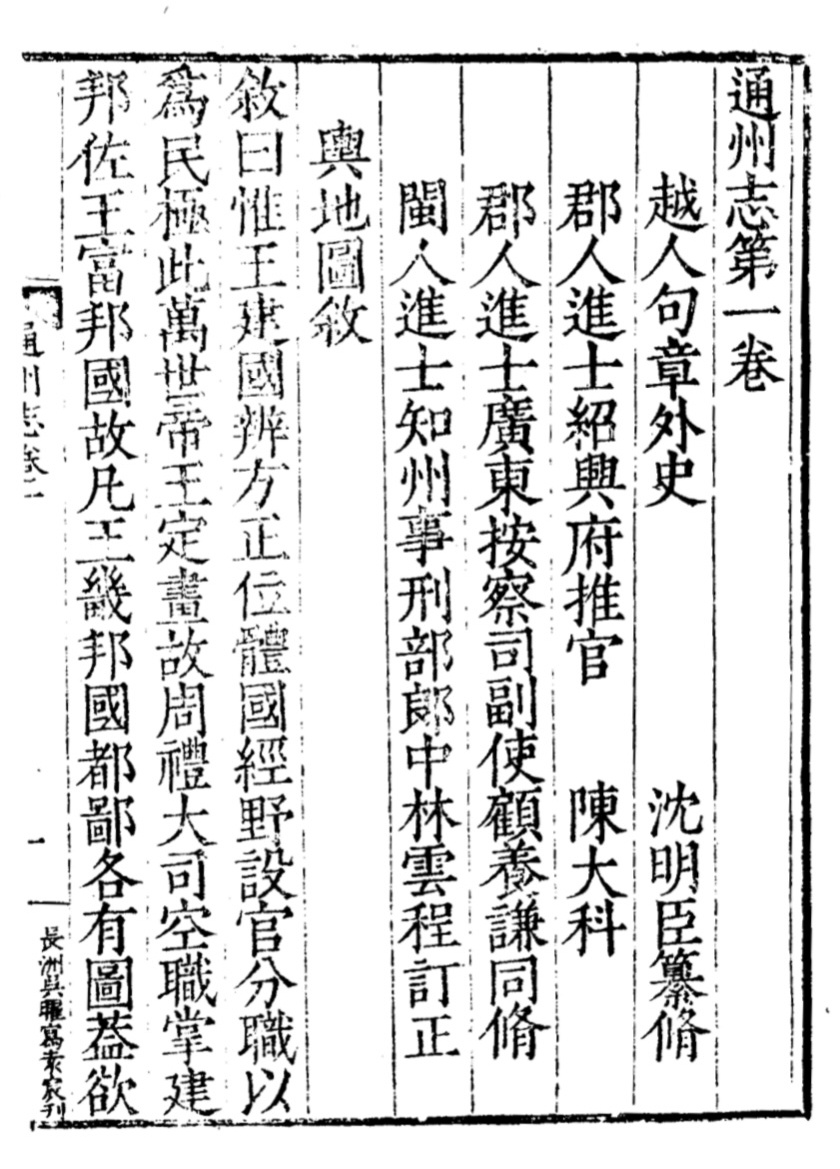 通州志第一卷
越人句章外史 沈明臣纂脩
郡人進士紹興府推官 陳大科
郡人進士廣東按察司副使顧養謙同脩
閩人進士知州事刑部郎中林雲程訂正
輿地圖敘
敘曰惟王建國辨方正位體國經野設官分職以
為民極此萬世帝王定畫故周禮大司空職掌建
邦佐王富邦國故凡王畿邦國都鄙各有圖葢欲
通州志卷一
一
長洲吳曜寫袁宸刊